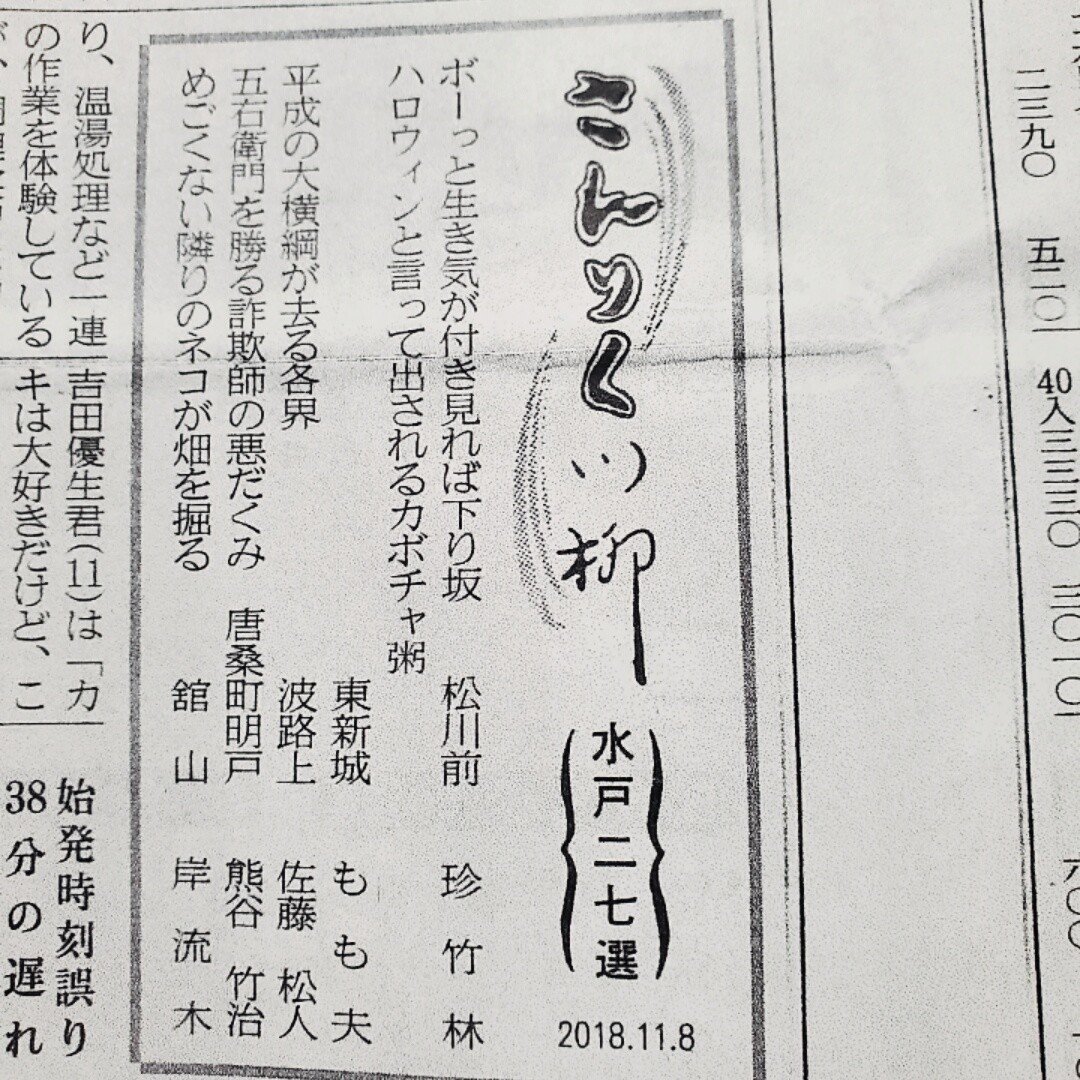 二三九〇
五二〇
40入三三三〇
三〇一〇
さんりく川柳
水戸二七選
2018.11.8
ボーっと生き気が付き見れば下り坂 松川前 珍竹林
ハロウィンと言って出されるカボチャ粥
東新城 もも夫
平成の大横綱が去る各界 波路上 佐藤 松人
五右衛門を勝る詐欺師の悪だくみ 唐桑町明戸 熊谷 竹治
めごくない隣りのネコが畑を掘る 舘山 岸流木
り、温湯処理など一連
の作業を体験している
吉田優生君(11)は「カ
キは大好きだけど、こ
始発時刻誤り
38分の遅れ